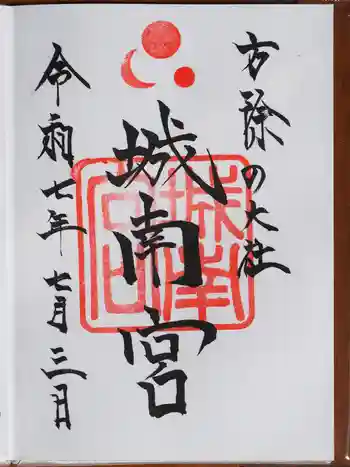 方除の大社
城南宮
城南宮印
令和七年七月三日